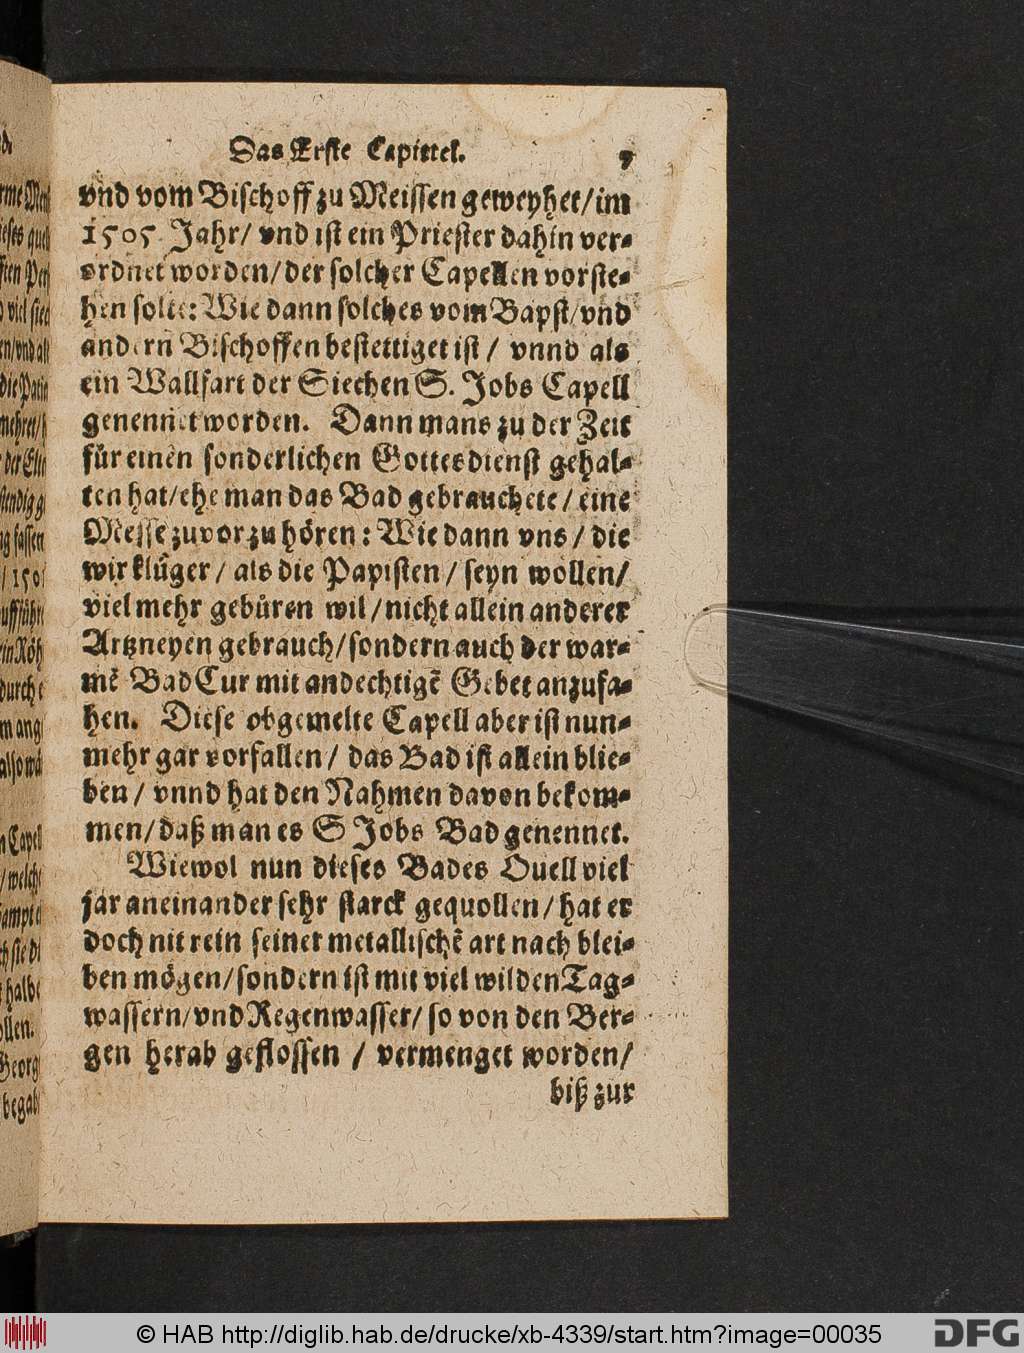 Das Erste Capittel. 7
vnd vom Bischoff zu Meissen geweyhet/im
1505. Jahr/ vnd ist ein Priester dahin ver-
ordnet worden/der solcher Capellen vorste-
hen solte: Wie dann solches vom Bapst/vnd
andern Bischoffen bestettiget ist / vnnd als
ein Wallfart der Siechen S. Jobs Capell
genennet worden. Dann mans zu der Zeit
für einen sonderlichen Gottesdienst gehal-
ten hat/ehe man das Bad gebrauchete / eine
Messe zuvor zu hören: Wie dann vns / die
wir klüger / als die Papisten / seyn wollen/
viel mehr gebüren wil/nicht allein anderer
Artzneyen gebrauch/sondern auch der war-
mē Bad Cur mit andechtigē Gebet anzufa-
hen. Diese obgemelte Capell aber ist nun-
mehr gar vorfallen / das Bad ist allein blie-
ben / vnnd hat den Nahmen davon bekom-
men/daß man es S Jobs Bad genennet.
Wiewol nun dieses Bades Quell viel
jar aneinander sehr starck gequollen/hat er
doch nit rein seiner metallischē art nach blei-
ben mögen/sondern ist mit viel wilden Tag-
wassern/vnd Regenwasser/so von den Ber-
gen herab geflossen / vermenget worden/
biß zur
© HAB http://diglib.hab.de/drucke/xb-4339/start.htm?image=00035
DFG